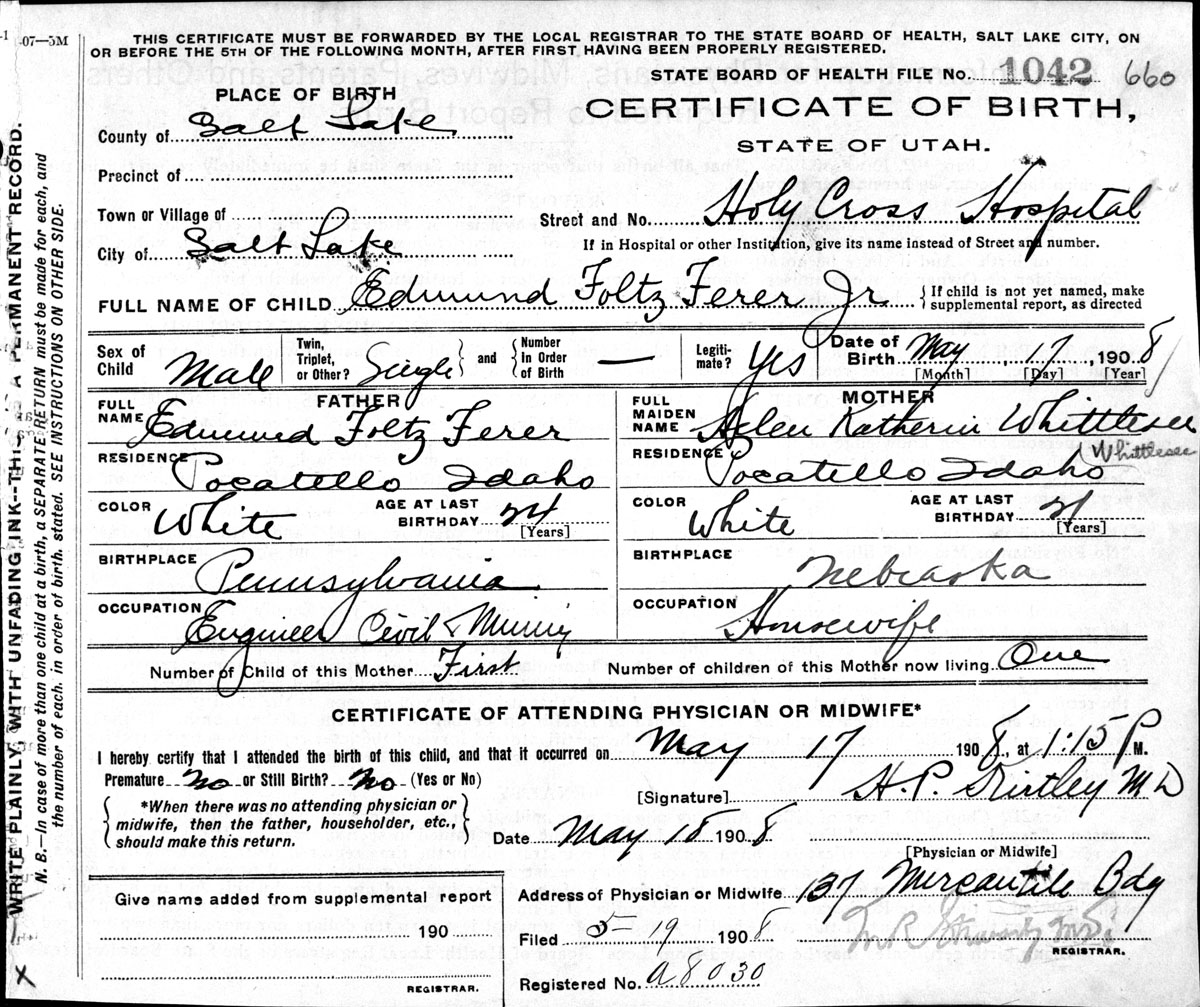 -1 -07—5M
THIS CERTIFICATE MUST BE FORWARDED BY THE LOCAL REGISTRAR TO THE STATE BOARD OF HEALTH, SALT LAKE CITY, ON
OR BEFORE THE 5TH OF THE FOLLOWING MONTH, AFTER FIRST HAVING BEEN PROPERLY REGISTERED.
STATE BOARD OF HEALTH FILE No. 1042 660
PLACE OF BIRTH
CERTIFICATE OF BIRTH,
STATE OF UTAH.
County of Salt Lake
Precinct of
Town or Village of
Street and No. Holy Cross Hospital
City of Salt Lake
If in Hospital or other Institution, give its name instead of Street and number.
FULL NAME OF CHILD Edmund Foltz Ferer Jr {If child is not yet named, make supplemental report, as directed
Sex of Child Male Twin, Triplet, or Other? Single and Number In Order of Birth — Legiti-mate? Yes Date of Birth May 17, 1908
[Month] [Day] [Year]
FATHER MOTHER
FULL NAME Edmund Foltz Ferer FULL MAIDEN NAME Helen Katherin Whittlesee
(Whittlesee
RESIDENCE Pocatello Idaho RESIDENCE Pocatello Idaho
COLOR White AGE AT LAST BIRTHDAY 24 [Years] COLOR White AGE AT LAST BIRTHDAY 21 [Years]
BIRTHPLACE Pennsylvania BIRTHPLACE Nebraska
OCCUPATION Engineer Civil & Mining OCCUPATION Housewife
Number of Child of this Mother First Number of children of this Mother now living One
CERTIFICATE OF ATTENDING PHYSICIAN OR MIDWIFE*
I hereby certify that I attended the birth of this child, and that it occurred on May 17 1908, at 1:15 P M.
Premature No or Still Birth? No (Yes or No)
[Signature] H. P. Kirtley M D
{*When there was no attending physician or midwife, then the father, householder, etc., should make this return.}
Date May 18 1908
[Physician or Midwife]
Give name added from supplemental report
Address of Physician or Midwife 137 Mercantile Bdg
190
Filed 5-19 1908
REGISTRAR.
Registered No. a8030
REGISTRAR.
WRITE PLAINLY, WITH UNFADING INK--THIS IS A PERMANENT RECORD.
N. B.—In case of more than one child at a birth, a SEPARATE RETURN must be made for each, and
the number of each, in order of birth, stated. SEE INSTRUCTIONS ON OTHER SIDE.
X